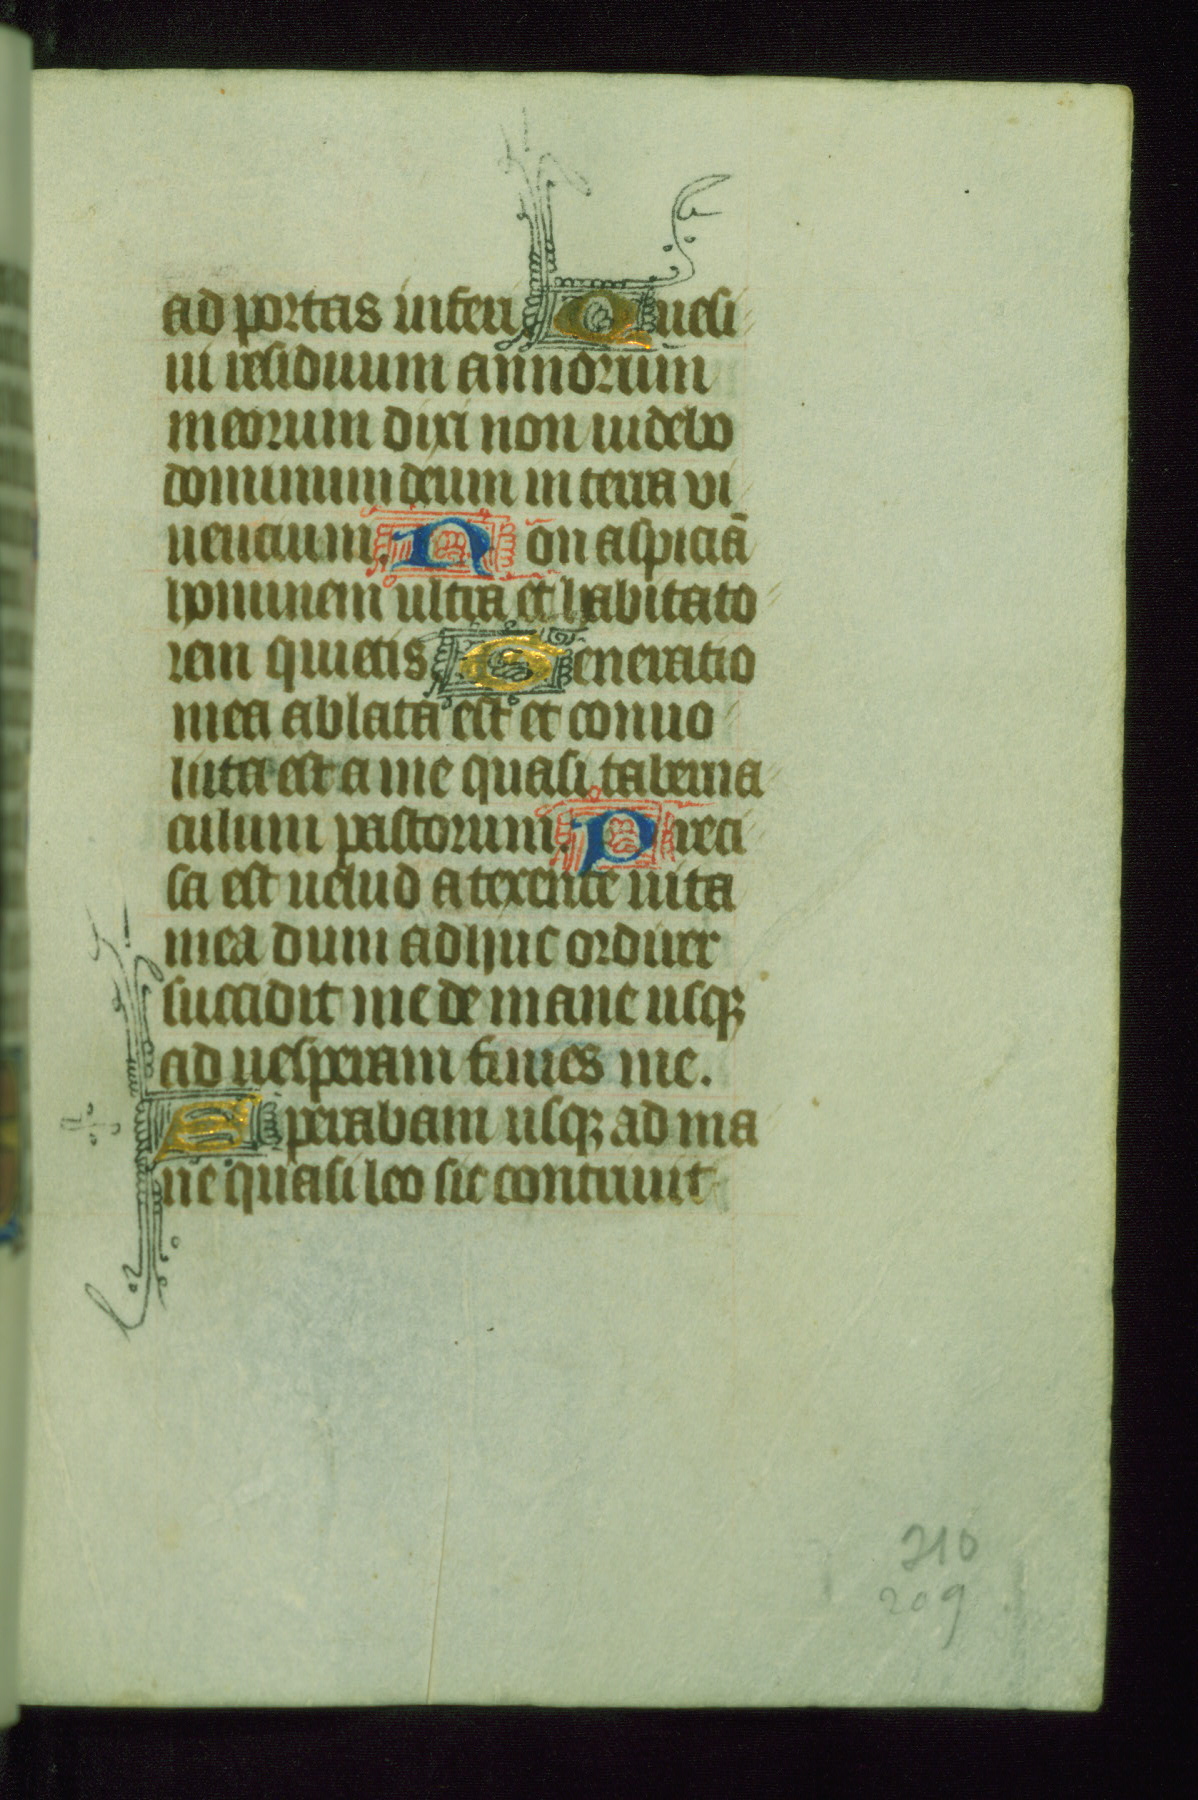 ad portas inferi Quesi
ui residuum annorum
meorum dixi non uidebo
dominum deum in terra vi
uencium. Non aspiciā
hominem ultra et habitato
rem quietis Generatio
mea ablata est et conuo
luta est a me quasi taberna
culum pastorum. Preci
sa est uelud a texente uita
mea dum adhuc ordirer
succidit me de mane usqꝫ
ad uesperam finies me.
Sperabam usqꝫ ad ma
ne quasi leo sic contriuit
210
209